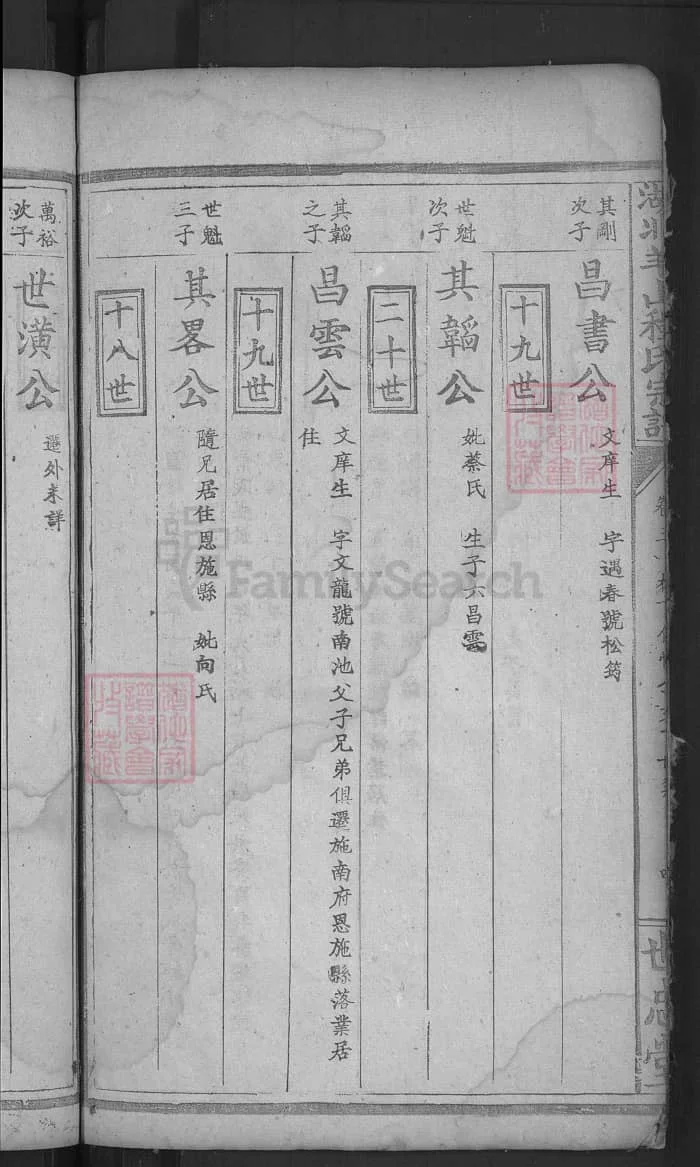 其剛次子
昌書公
文庠生　字遇春號松筠
十九世
世魁次子
其韜公
妣蔡氏　生子六昌雲
二十世
其韜之子
昌雲公
文庠生　字文龍號南池父子兄弟俱遷施南府恩施縣落業居
住
十九世
世魁三子
其畧公
隨兄居住恩施縣　妣向氏
十八世
萬裕次子
世潢公
遷外未詳
FamilySearch